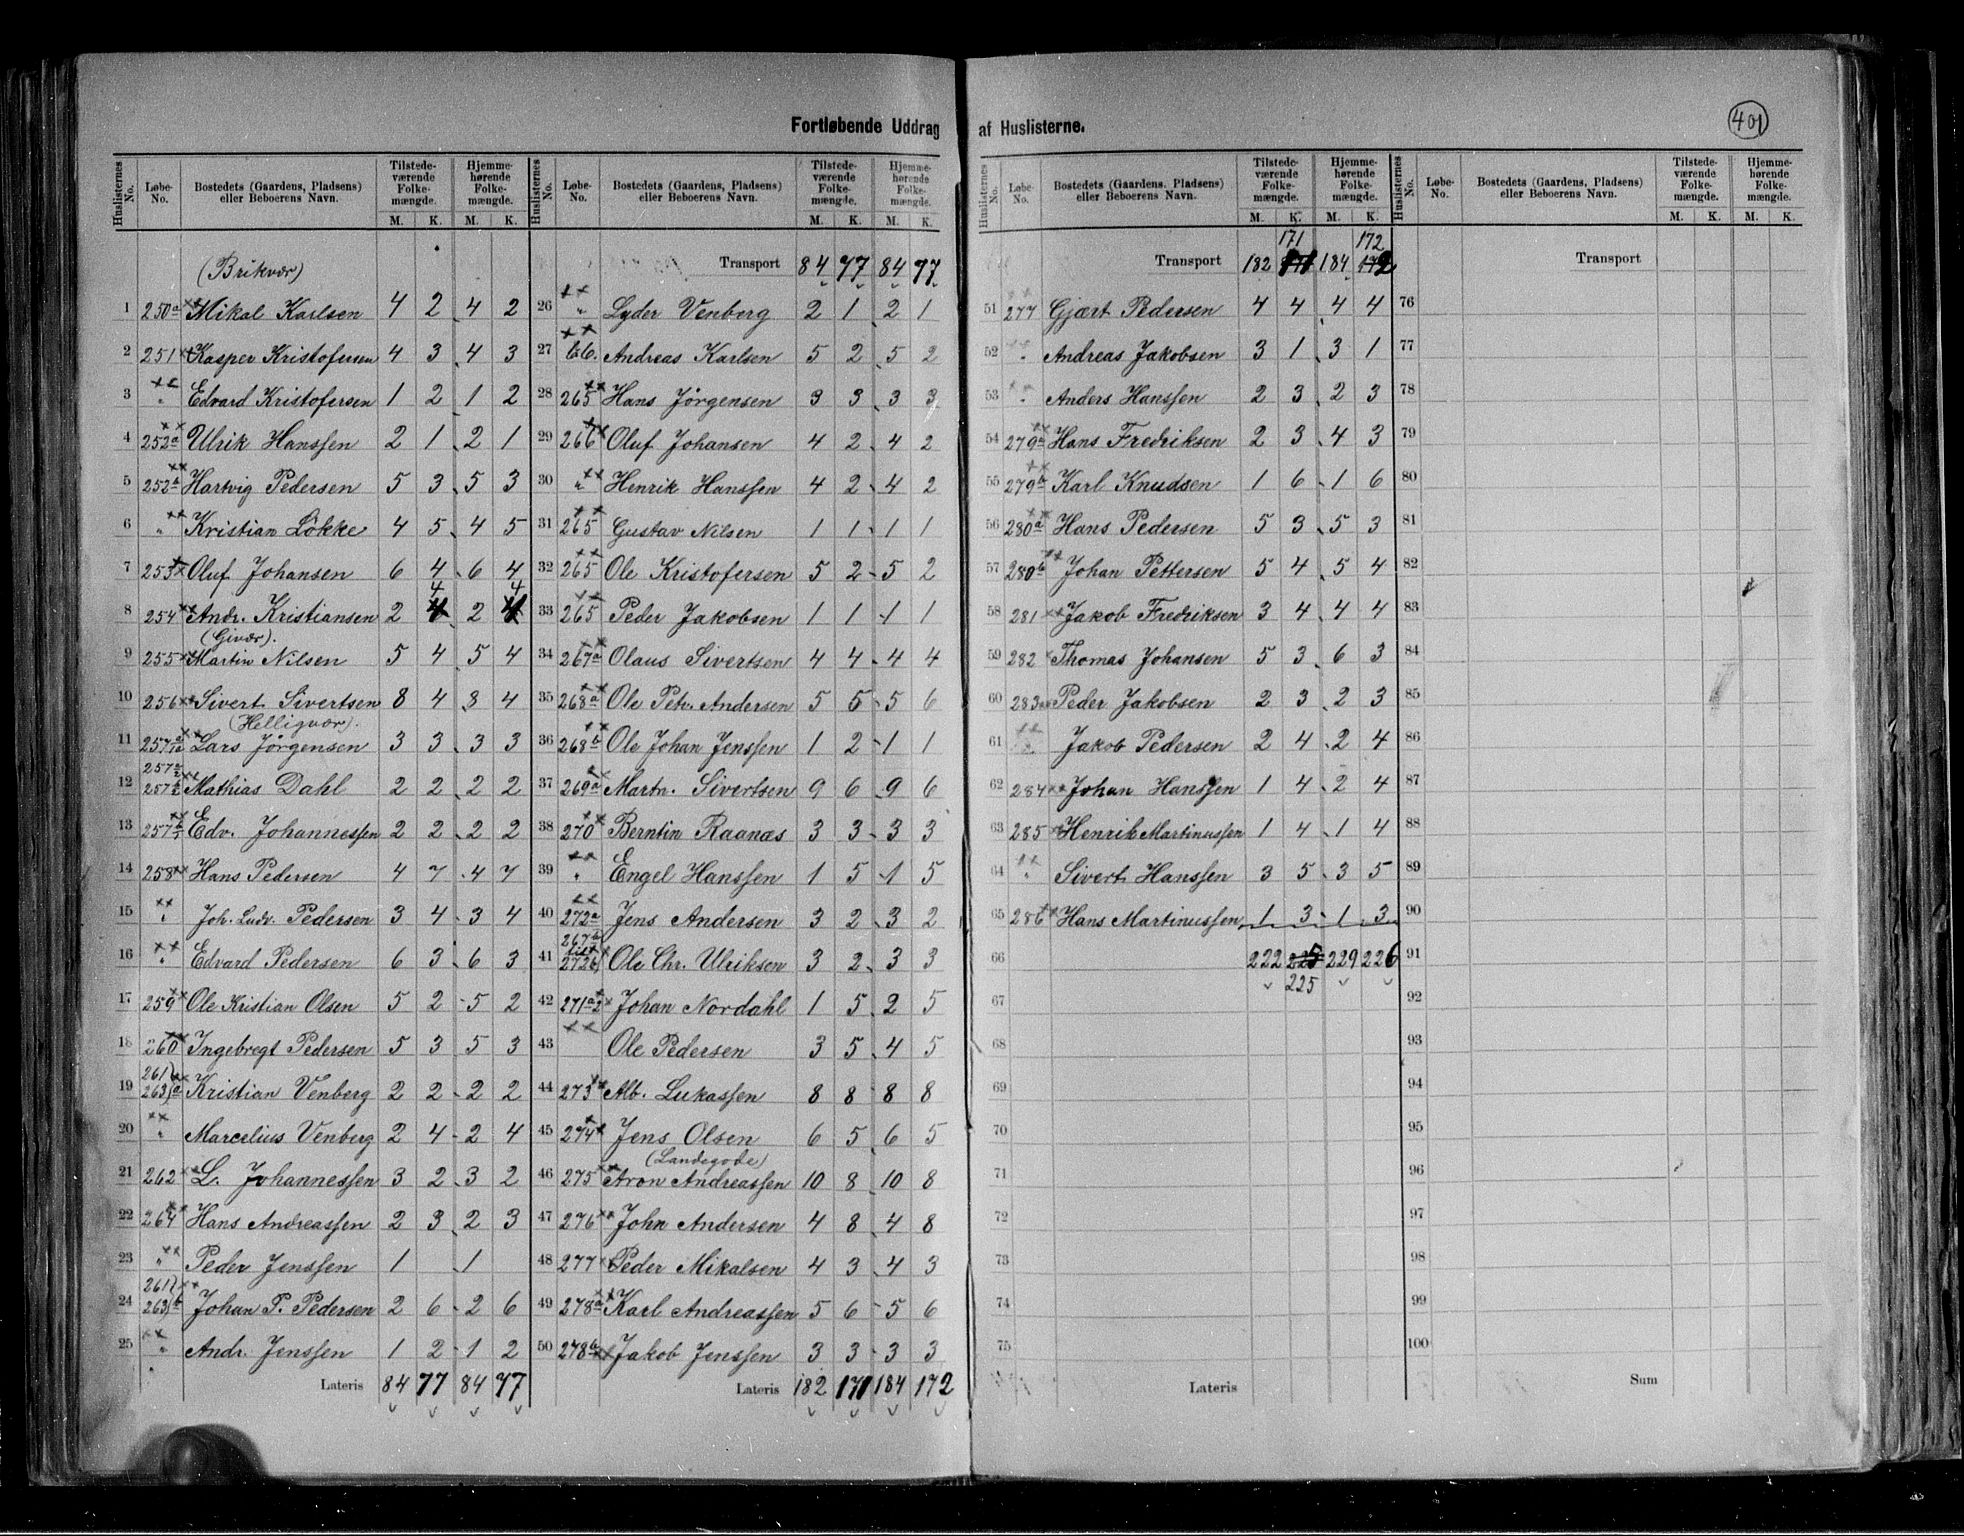 Fortløbende Uddrag af Huslisterne.
401
Huslisternes No. Løbe-No. Bostedets (Gaardens, Pladsens) eller Beboerens Navn. Tilstedeværende Folkemængde. M. K. Hjemmehørende Folkemængde. M. K.
(Brikvær)
1 250a Mikal Karlsen 4 2 4 2
2 251 Kasper Kristofersen 4 3 4 3
3 " Edvard Kristofersen 1 2 1 2
4 252a Ulrik Hansſen 2 1 2 1
5 252b Hartvig Pedersen 5 3 5 3
6 " Kristian Løkke 4 5 4 5
7 253 Oluf Johansen 6 4 6 4
8 254 Andr. Kristiansen 2 4 2 4
(Givær).
9 255 Martin Nilsen 5 4 5 4
10 256 Sivert Sivertsen 8 4 8 4
(Helligvær).
11 257 Lars Jörgensen 3 3 3 3
12 257 Mathias Dahl 2 2 2 2
13 257 Edv. E Johannesſen 2 2 2 2
14 258 Hans Pedersen 4 7 4 7
15 " Joh. Ludv. Pedersen 3 4 3 4
16 " Edvard Pedersen 6 3 6 3
17 259 Ole Kristian Olsen 5 2 5 2
18 260 Ingebregt Pedersen 5 3 5 3
19 261 263 a Kristian Venberg 2 2 2 2
20 " Marcelius Venberg 2 4 2 4
21 262 L. Johannesſen 3 2 3 2
22 264 Hans Andreasſen 2 3 2 3
23 " Peder Jensſen 1 1
24 261 263 b Johan P. Pedersen 2 6 2 6
25 " Andr. Jensſen 1 2 1 2
Lateris 84 77 84 77
Huslisternes No. Løbe-No. Bostedets (Gaardens, Pladsens) eller Beboerens Navn. Tilstedeværende Folkemængde. M. K. Hjemmehørende Folkemængde. M. K.
Transport 84 77 84 77
26 " Lyder Venberg 2 1 2 1
27 Andreas Karlsen 5 2 5 2
28 265 Hans Jörgensen 3 3 3 3
29 266 Oluf Johansen 4 2 4 2
30 " Henrik Hansſen 4 2 4 2
31 265 Gustav Nilsen 1 1 1 1
32 265 Ole Kristofersen 5 2 5 2
33 265 Peder Jakobsen 1 1 1 1
34 267a Olaus Sivertsen 4 4 4 4
35 268a Ole Petr. Andersen 5 6 5 6
36 268b Ole Johan Jensſen 1 2 1 1
37 269a Martn. Sivertsen 9 6 9 6
38 270 Berntin Raanæs 3 3 3 3
39 " Engel Hansſen 1 5 1 5
40 272a Jens Andersen 3 2 3 2
41 267b 272b Ole Chr. Ulriksen 3 2 3 3
42 271a2 Johan Nordahl 1 5 2 5
43 Ole Pedersen 3 5 4 5
44 273 Alb. Lukasſen 8 8 8 8
45 274 Jens Olsen 6 5 6 5
(Landegode)
46 275 Aron Andreasſen 10 8 10 8
47 276 John Andersen 4 8 4 8
48 277 Peder Mikalsen 4 3 4 3
49 278a Karl Andreasſen 5 6 5 6
50 278b Jakob Jensſen 3 3 3 3
Lateris 182 171 184 172
Huslisternes No. Løbe-No. Bostedets (Gaardens. Pladsens) eller Beboerens Navn. Tilstedeværende Folkemængde. M. K. Hjemmehørende Folkemængde. M. K.
171 172
Transport 182 171 184 172
51 277 Gjært Pedersen 4 4 4 4
52 " Andreas Jakobsen 3 1 3 1
53 " Anders Hansſen 2 3 2 3
54 279a Hans Fredriksen 2 3 4 3
55 279b Karl Knudsen 1 6 1 6
56 280a Hans Pedersen 5 3 5 3
57 280b Johan Pettersen 5 4 5 4
58 281 Jakob Fredriksen 3 4 4 4
59 282 Thomas Johansen 5 3 6 3
60 283a Peder Jakobsen 2 3 2 3
61 " Jakob Pedersen 2 4 2 4
62 284 Johan Hansſen 1 4 2 4
63 285 Henrik Martinusſen 1 4 1 4
64 " Sivert Hansſen 3 5 3 5
65 286 Hans Martinusſen 1 3 1 3
66 222 225 229 226
225
67
68
69
70
71
72
73
74
75
Lateris
Huslisternes No. Løbe-No. Bostedets (Gaardens, Pladsens) eller Beboerens Navn. Tilstedeværende Folkemængde. M. K. Hjemmehørende Folkemængde. M. K.
Transport
76
77
78
79
80
81
82
83
84
85
86
87
88
89
90
91
92
93
94
95
96
97
98
99
100
Sum